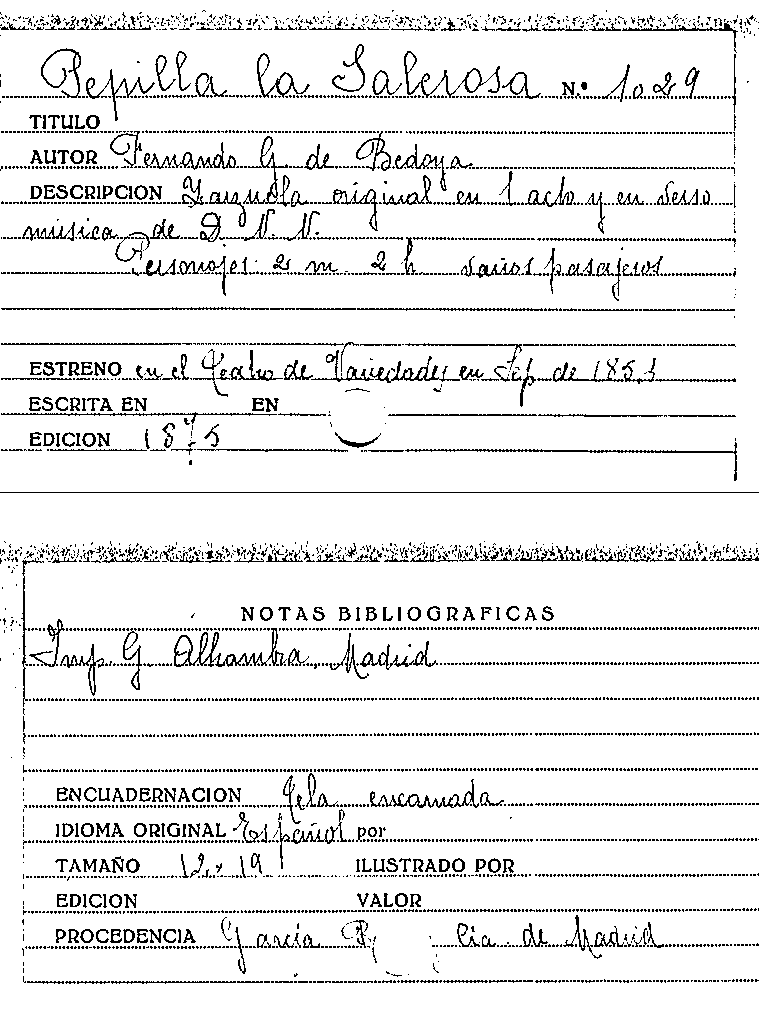 Pepilla la Salerosa N.º 1029
TITULO
AUTOR Fernando G. de Bedoya
DESCRIPCION Zarzuela original en 1 acto y en verso
música de D. N. N.
Personajes: 2 m 2 h varios pasajeros
ESTRENO en el Teatro de Variedades en Sep de 185
ESCRITA EN EN
EDICION 1875
NOTAS BIBLIOGRAFICAS
Imp. G. Alhambra. Madrid
ENCUADERNACION Tela encarnada
IDIOMA ORIGINAL Español por
TAMAÑO 12 x 19 ILUSTRADO POR
EDICION VALOR
PROCEDENCIA García cia de Madrid